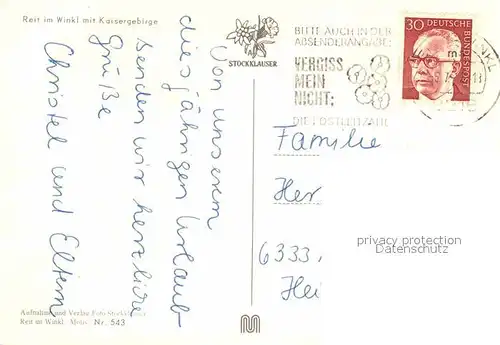 Reit im Winkl mit Kaisergebirge
STÖCKLAUSER
BITTE AUCH IN DER
ABSENDERANGABE:
VERGISS
MEIN
NICHT:
DIE POSTLEITZAHL
30 DEUTSCHE
BUNDESPOST
Von unserem
diesjährigen Urlaub
senden wir herzliche
Grüße
Christel und Eltern
Familie
Her
6333,
Hei
privacy protection
Datenschutz
Aufnahme und Verlag Foto-Stöcklauser
Reit im Winkl Motiv Nr. 543